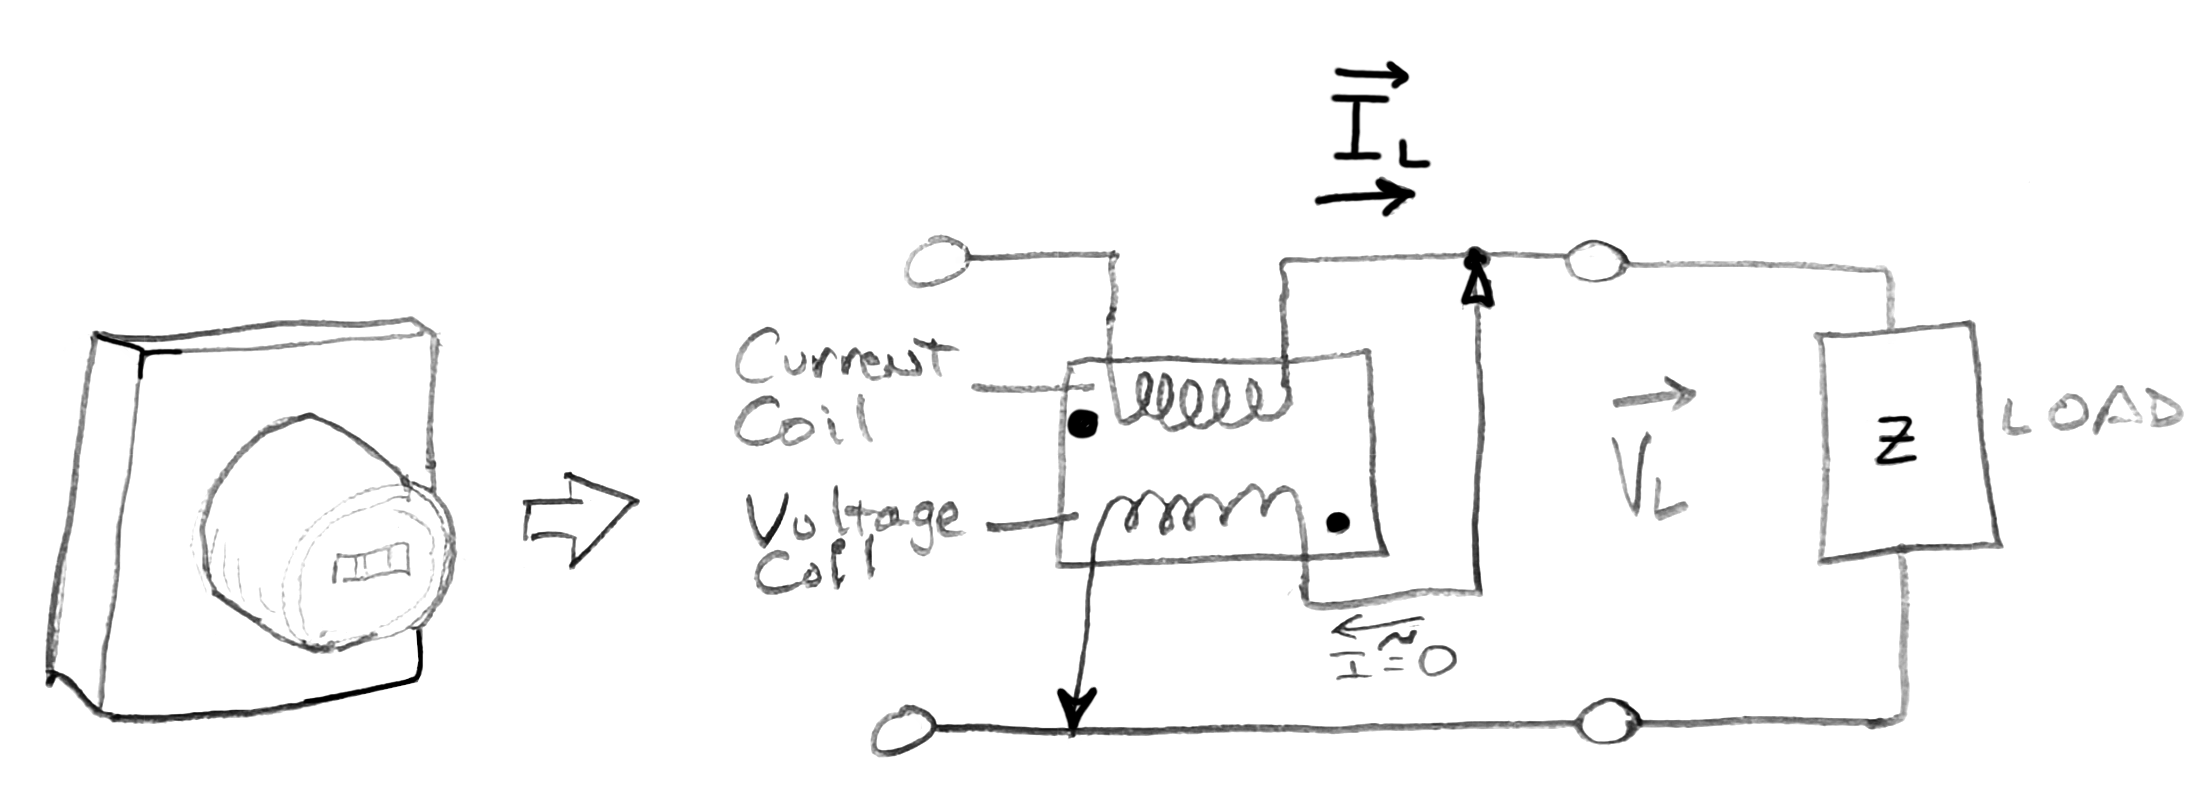 I⃗L
Current
Coil
Voltage
Coil
I≅0
V⃗L
Z
LOAD